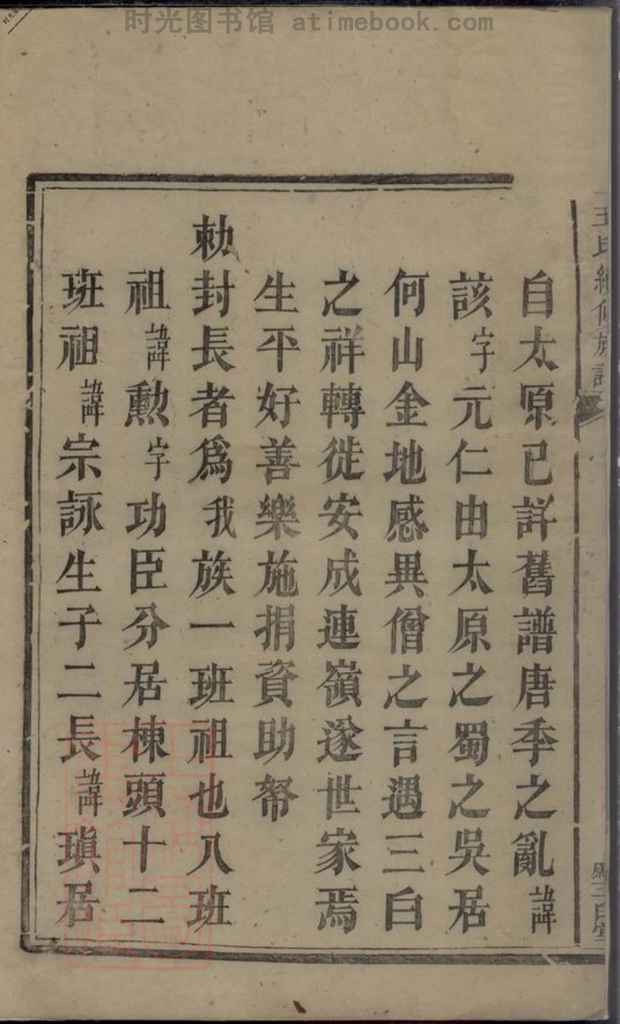 时光图书馆 atimebook.com
自太原已詳舊譜唐季之亂諱
該字元仁由太原之蜀之吳居
何山金地感異僧之言遇三白
之祥轉徙安成連嶺遂世家焉
生平好善樂施捐資助帑
勅封長者爲我族一班祖也八班
祖諱勲字功臣分居棟頭十二
班祖諱宗詠生子二長諱瑱居